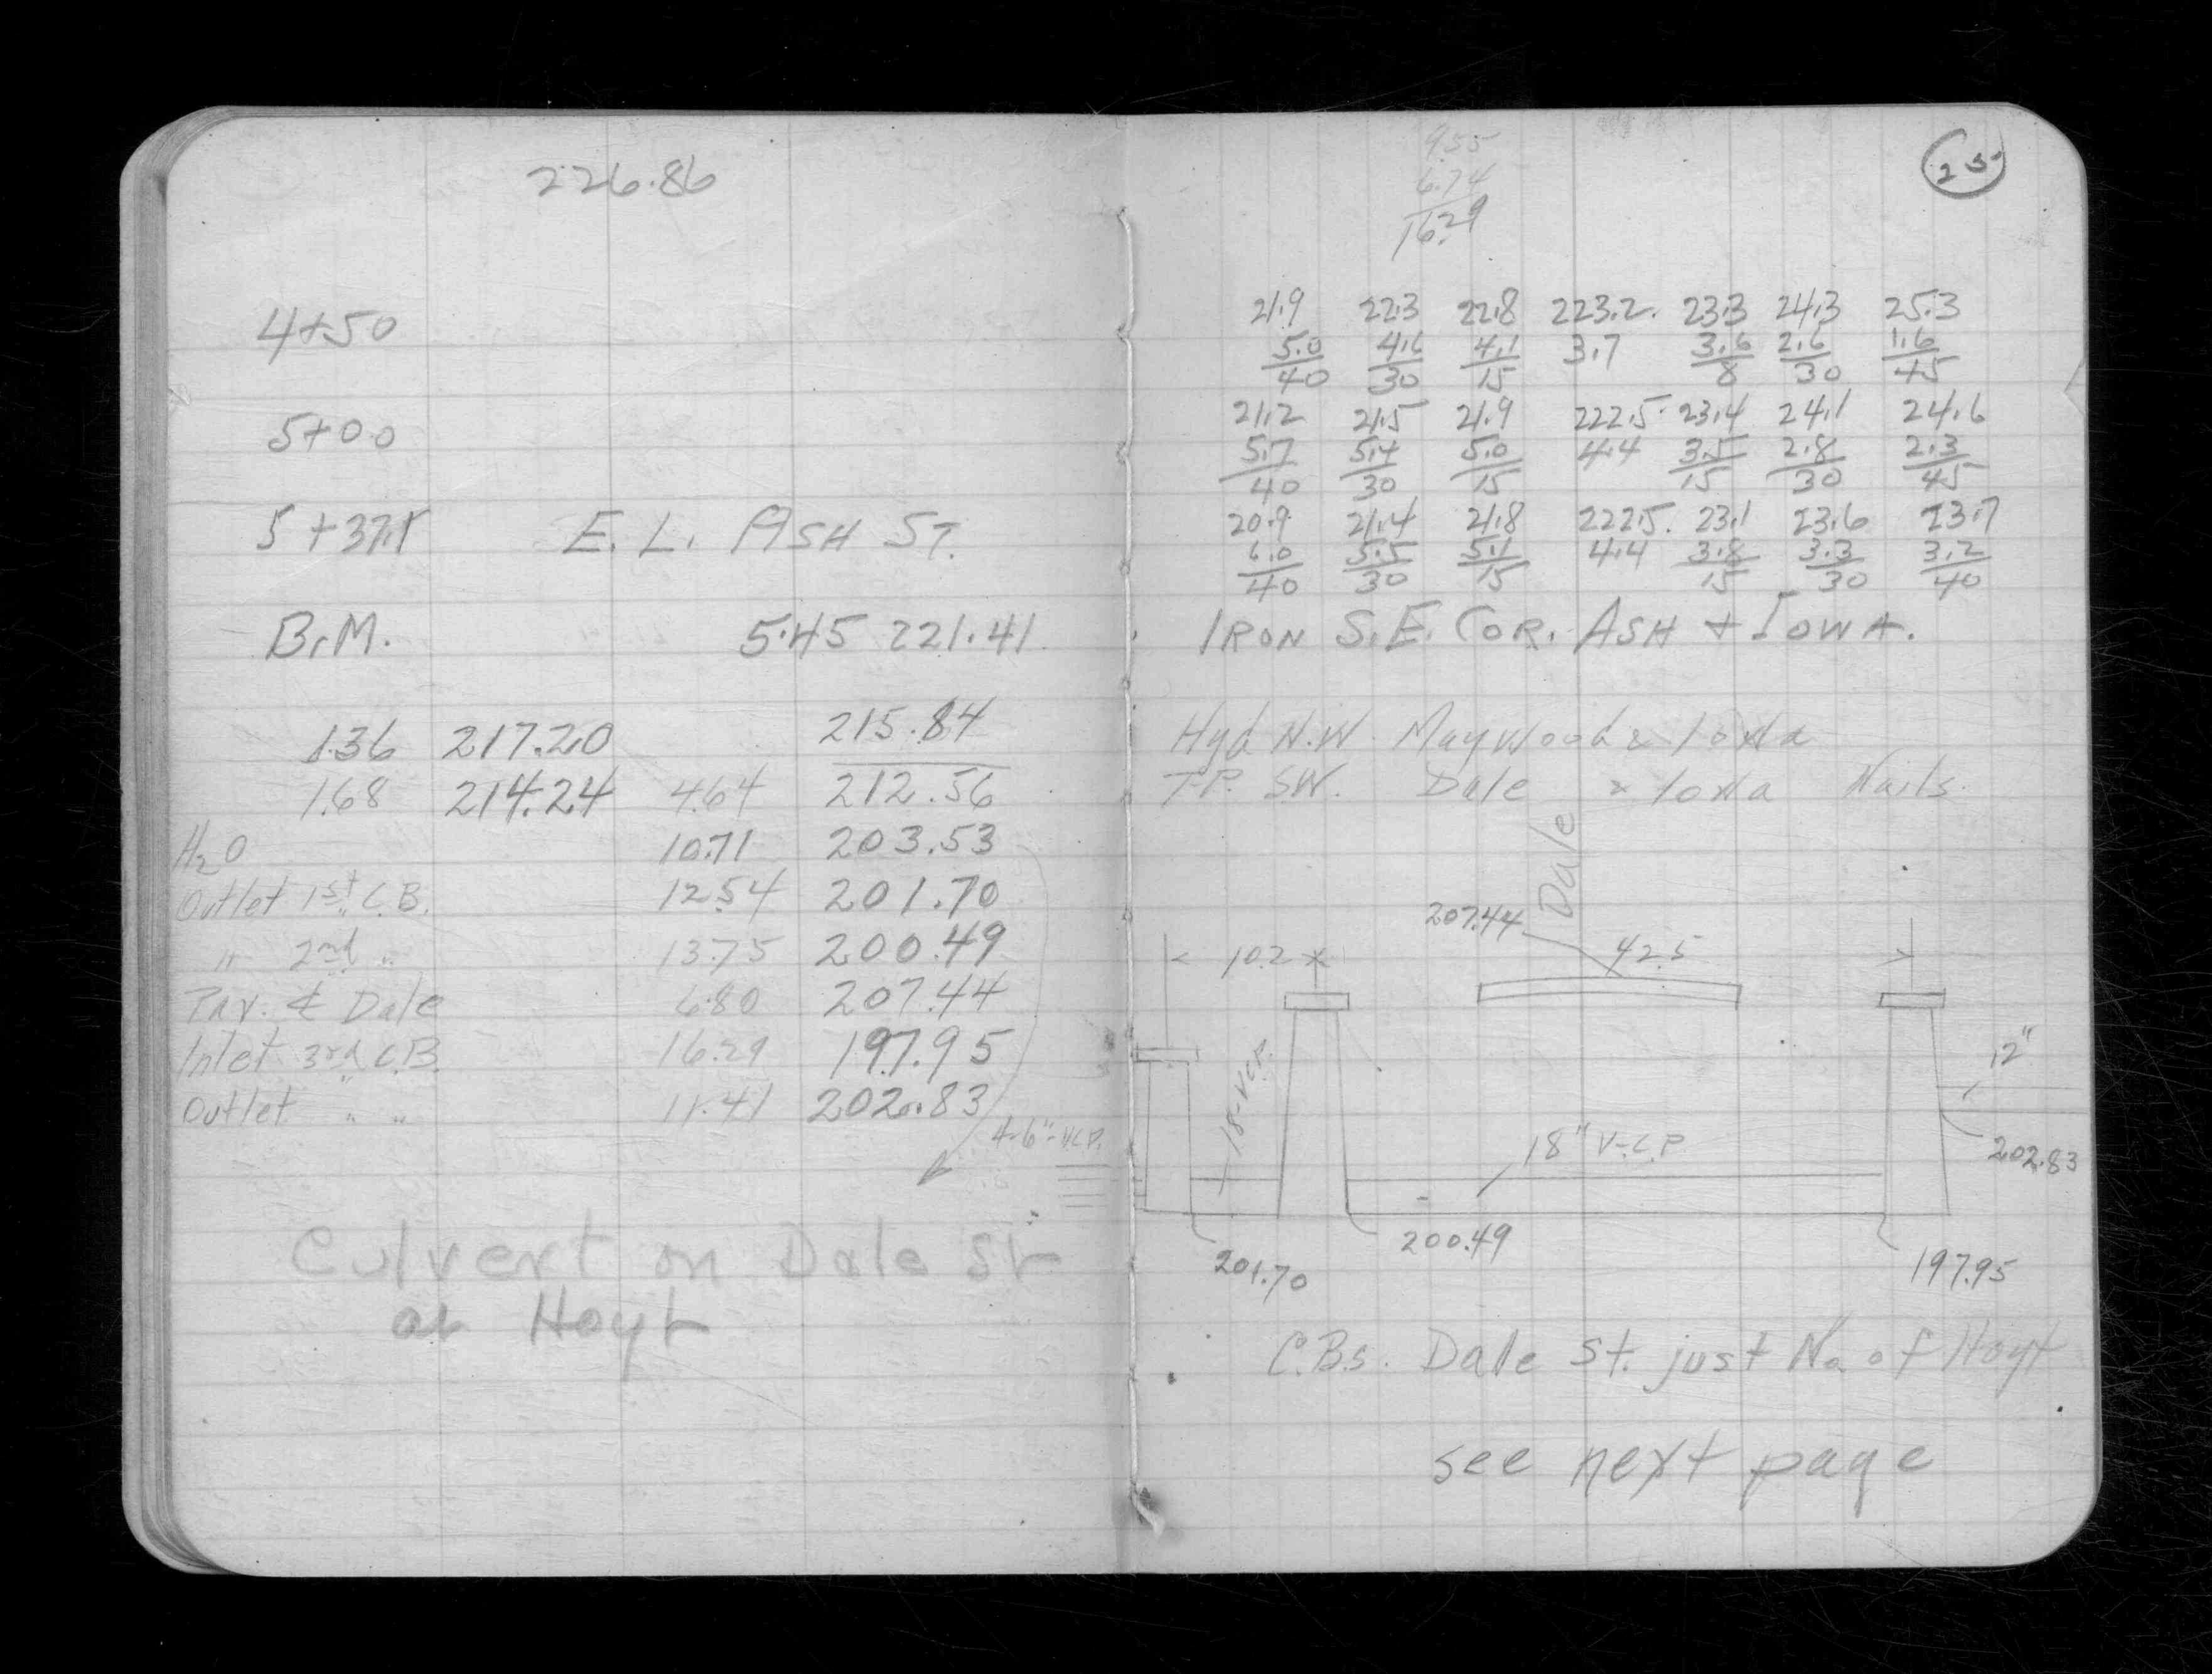 226.86
4+50
5+00
5+37.1 E. L. ASH ST.
B.M. 5.45 221.41
1.36 217.20 215.84
1.68 214.24 4.64 212.56
H2O 10.71 203.53
Outlet 1st C.B. 12.54 201.70
" 2nd " 13.75 200.49
Pav. ¢ Dale 6.80 207.44
Inlet 3rd C.B. 16.29 197.95
Outlet " " 11.41 202.83
4-6"-V.C.P.
Culvert on Dale St
at Hoyt
25
9.55
6.74
16.29
21.9 22.3 22.8 223.2 23.3 24.3 25.3
5.0 4.6 4.1 3.7 3.6 2.6 1.6
40 30 15 8 30 45
21.2 21.5 21.9 222.5 23.4 24.1 24.6
5.7 5.4 5.0 4.4 3.5 2.8 2.3
40 30 15 15 30 45
20.9 21.4 21.8 222.5 23.1 23.6 23.7
6.0 5.5 5.1 4.4 3.8 3.3 3.2
40 30 15 15 30 40
IRON S.E. COR. ASH + IOWA.
Hyd N.W. Maywood & Iowa
T.P. S.W. Dale & Iowa Nails.
Dale
207.44
10.2 42.5
12"
18-V.C.P.
18" V.C.P.
202.83
200.49
201.70
197.95
C.B.s. Dale St. just No. of Hoyt
see next page